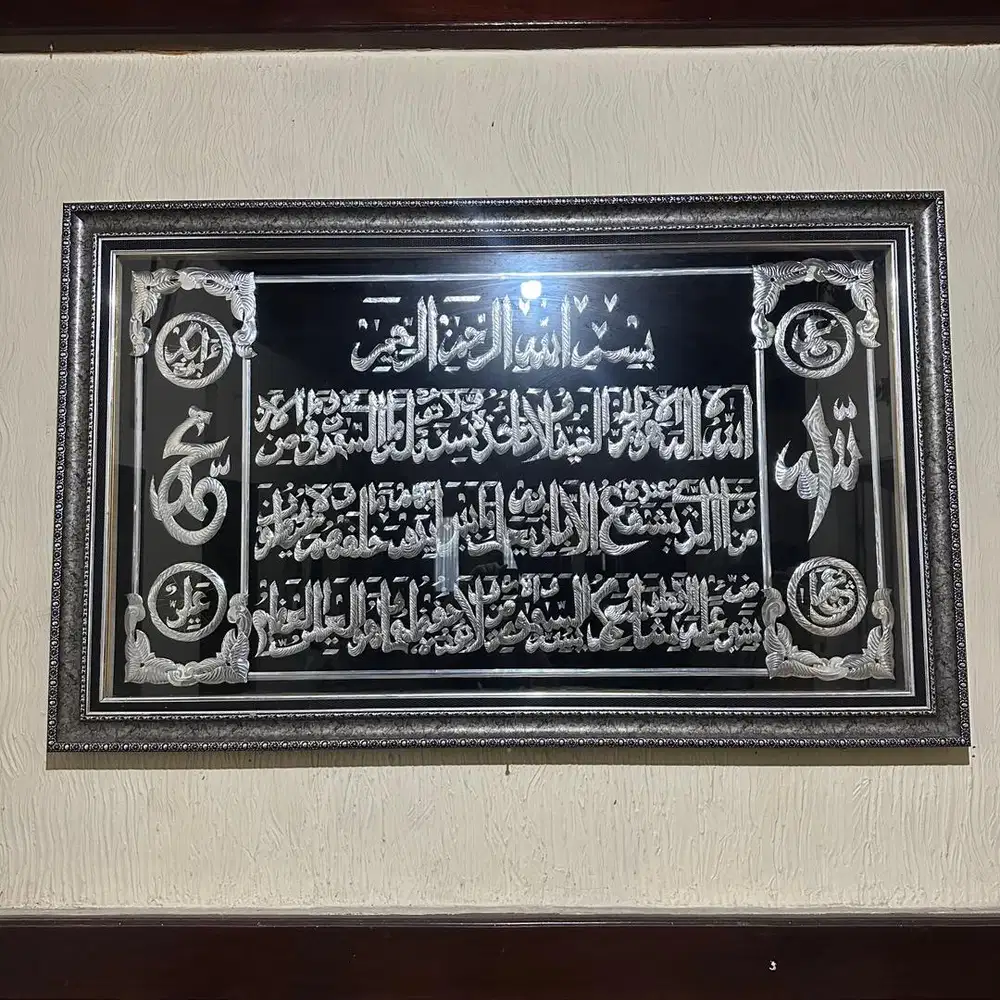 بسم الله الرحمن الرحيم
الله لا إله إلا هو الحي القيوم لا تأخذه سنة ولا نوم له ما في السموات وما في الأرض
من ذا الذي يشفع عنده إلا بإذنه يعلم ما بين أيديهم وما خلفهم ولا يحيطون
بشيء من علمه إلا بما شاء وسع كرسيه السموات والأرض ولا يؤده حفظهما وهو العلي العظيم
الله
محمد
عمر
أبو بكر
عثمان
علي